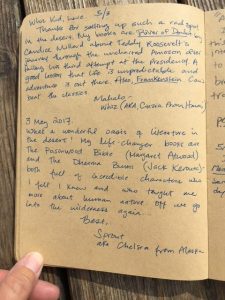 Whiz Kid, here. 5/3
Thanks for setting up such a rad spot
in the desert. My books are River of Doubt by
Candice Millard about Teddy Roosevelt's
journey through the uncharted Amazon after
failing his third attempt at the Presidency. A
good lesson that life is unpredictable and
adventure is out there. Also Frankenstein. Can't
beat the classics.
Mahalo -
Whiz (AKA Cassie from Home)
3 May 2017.
What a wonderful oasis of literature in
the desert! My life-changer books are
The Poisonwood Bible (Margaret Atwood)
and The Dharma Bums (Jack Kerouac) -
both full of incredible characters who
I felt I knew and who taught me
more about human nature. Off we go
into the wilderness again...
Best,
Sprout
aka Chelsea from Alaska